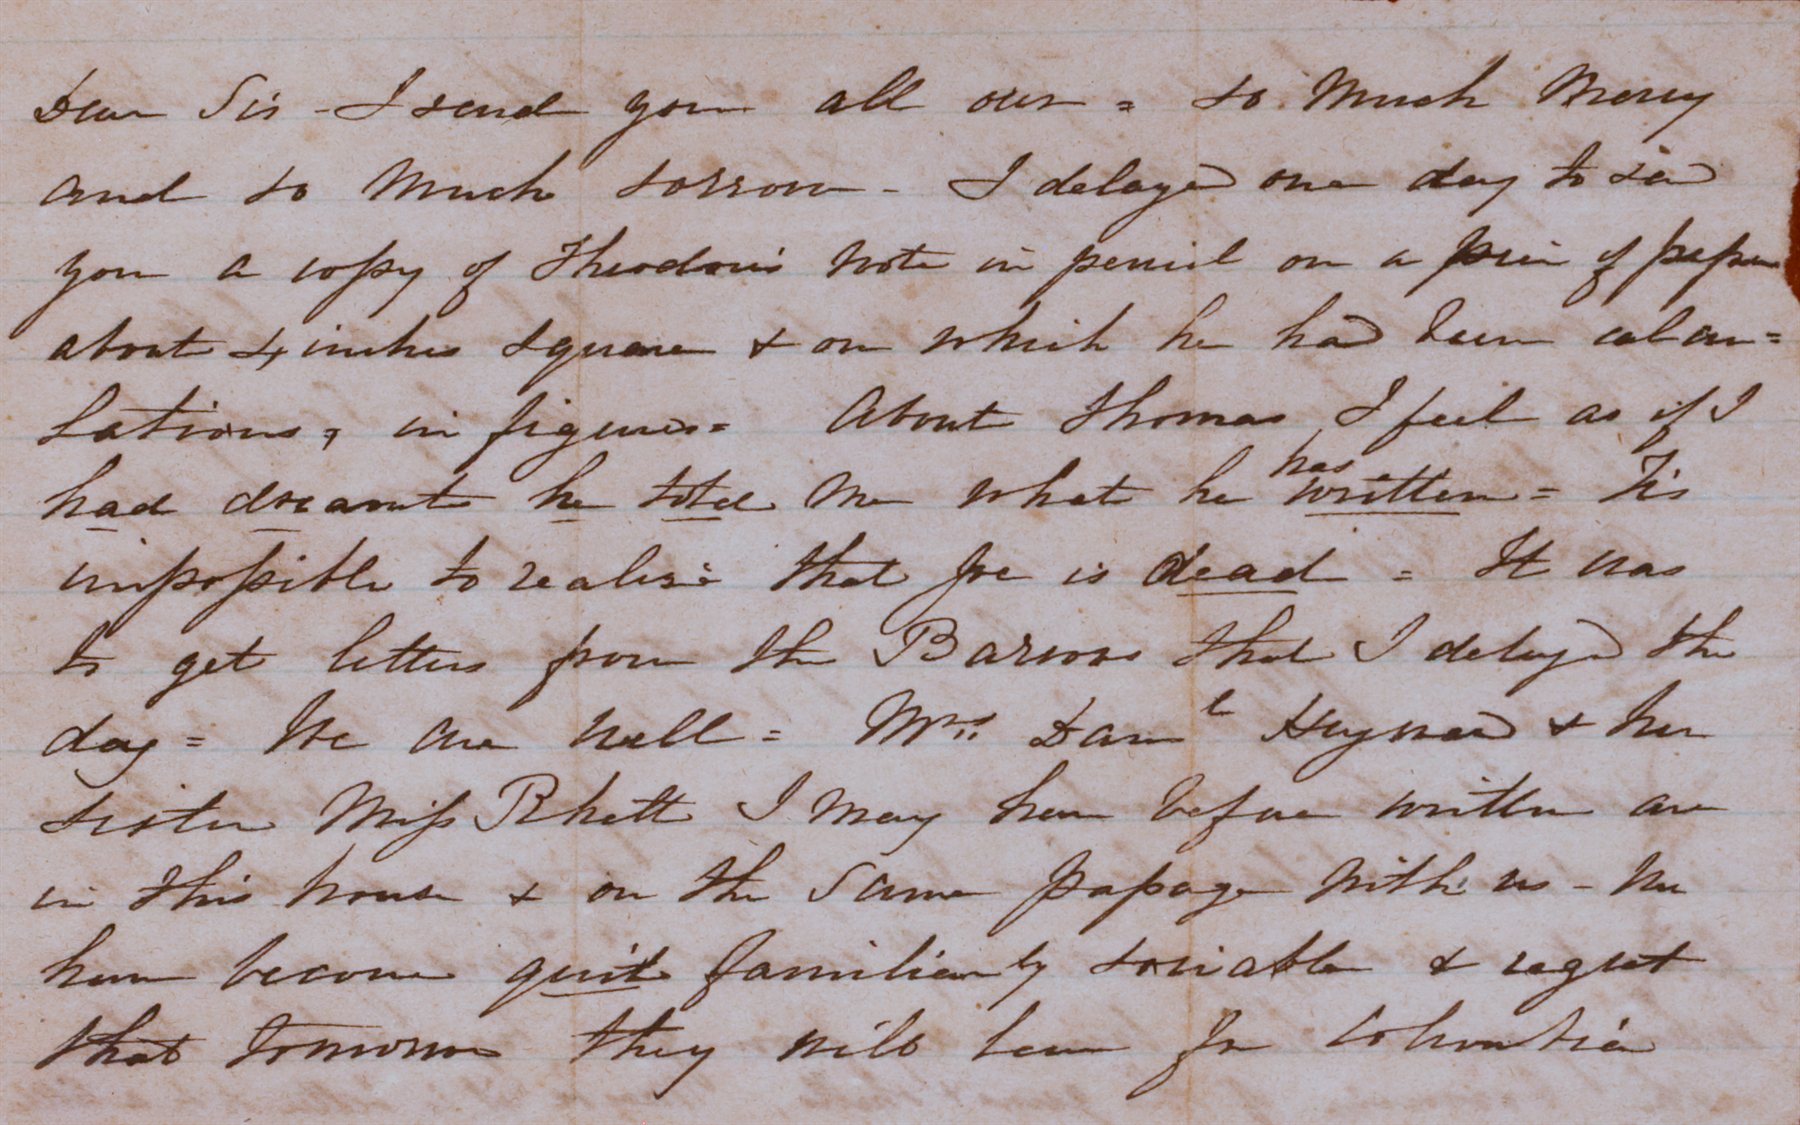 Dear Sis - I send you all our = so much Mercy
and so much sorrow - I delayed one day to send
you a copy of Theodore's note in pencil on a piece of paper
about 4 inches square & on which he had been calcu=
lations, in figures = About Thomas I feel as if I
had dreamt he told me what he has written = Tis
impossible to realise that Joe is dead = It was
to get letters from the Barrows that I delayed the
day = We are well = Mrs. Danl Heyward & her
sister Miss Rhett I may have before written are
in this house & on the same passage with us - We
have become quite familiarly sociable & regret
that tomorrow they will leave for Columbia